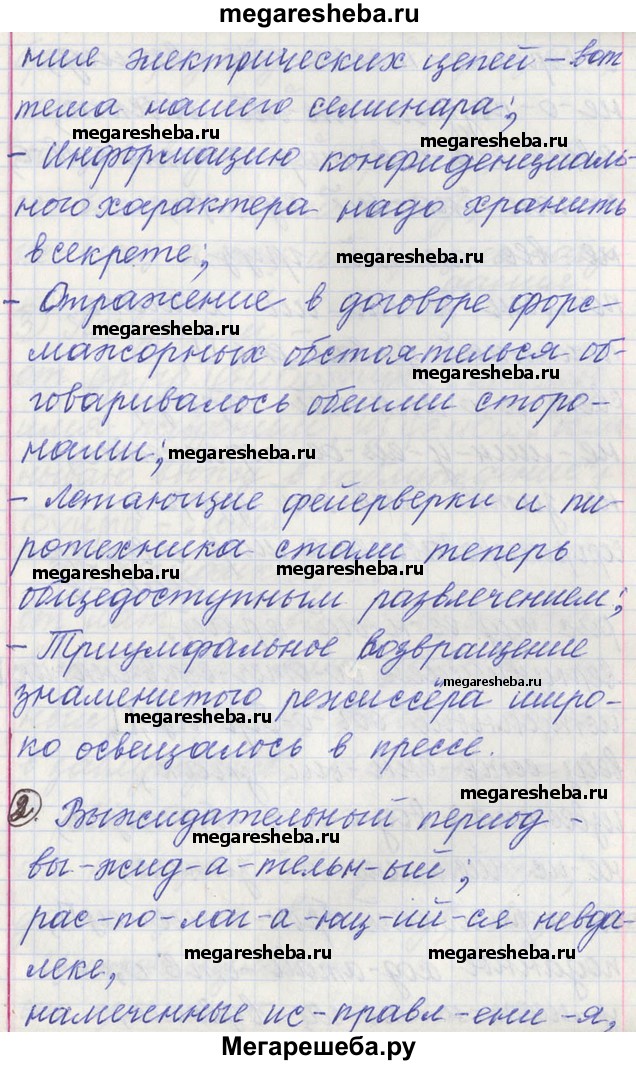 megaresheba.ru
ние электрических цепей – вот
тема нашего семинара;
megaresheba.ru
megaresheba.ru
– Информацию конфиденциаль-
ного характера надо хранить
в секрете;
megaresheba.ru
– Отражение в договоре форс-
megaresheba.ru
мажорных обстоятельсв об-
megaresheba.ru
говаривалось обеими сторо-
нами;
megaresheba.ru
– Летающие фейерверки и пи-
ротехника стали теперь
megaresheba.ru
megaresheba.ru
общедоступным развлечением;
– Триумфальное возвращение
megaresheba.ru
знаменитого режиссёра широ-
megaresheba.ru
ко освещалось в прессе.
2. Выжидательный период –
megaresheba.ru
вы-жид-а-тельн-ый;
рас-по-лаг-а-ющ-ий-ся невда-
megaresheba.ru
megaresheba.ru
леке,
намеченные ис-правл-ени-я,
Мегарешеба.ру